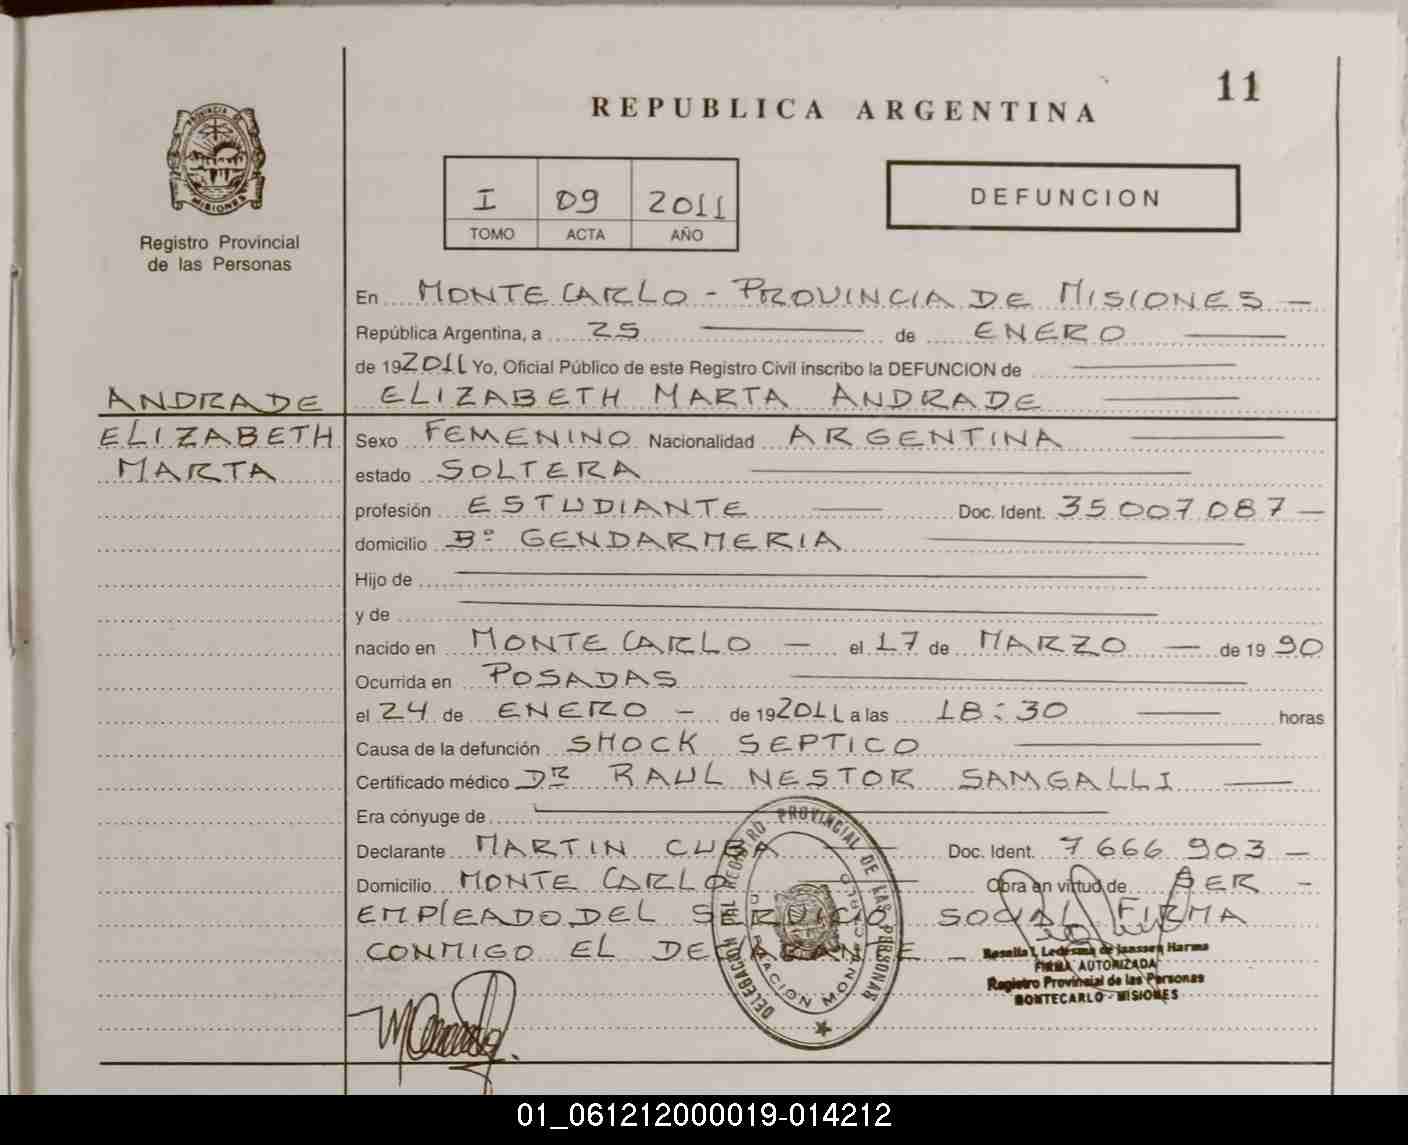 11
REPUBLICA ARGENTINA
PROVINCIA DE
MISIONES
Registro Provincial
de las Personas
I 09 2011
TOMO ACTA AÑO
DEFUNCION
En MONTE CARLO - PROVINCIA DE MISIONES -
República Argentina, a 25 de ENERO
de 192011 Yo, Oficial Público de este Registro Civil inscribo la DEFUNCION de
ANDRADE ELIZABETH MARTA ANDRADE
ELIZABETH Sexo FEMENINO Nacionalidad ARGENTINA
MARTA estado SOLTERA
profesión ESTUDIANTE Doc. Ident. 35007087 -
domicilio Bº GENDARMERIA
Hijo de
y de
nacido en MONTE CARLO - el 17 de MARZO - de 19 90
Ocurrida en POSADAS
el 24 de ENERO - de 192011 a las 18:30 horas
Causa de la defunción SHOCK SEPTICO
Certificado médico DR RAUL NESTOR SAMGALLI
Era cónyuge de
Declarante MARTIN CUBA Doc. Ident. 7666903 -
Domicilio MONTE CARLO Obra en virtud de SER -
EMPLEADO DEL SERVICIO SOCIAL FIRMA
CONMIGO EL DECLARANTE -
DELEGACION DEL REGISTRO PROVINCIAL DE LAS PERSONAS
Rosalia L Ledesma de Janssen Harms
FIRMA AUTORIZADA
Registro Provincial de las Personas
MONTECARLO - MISIONES
01_061212000019-014212